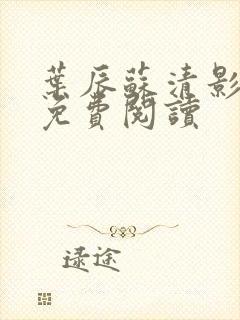 葉辰蘇清影
免費閱讀
逯途